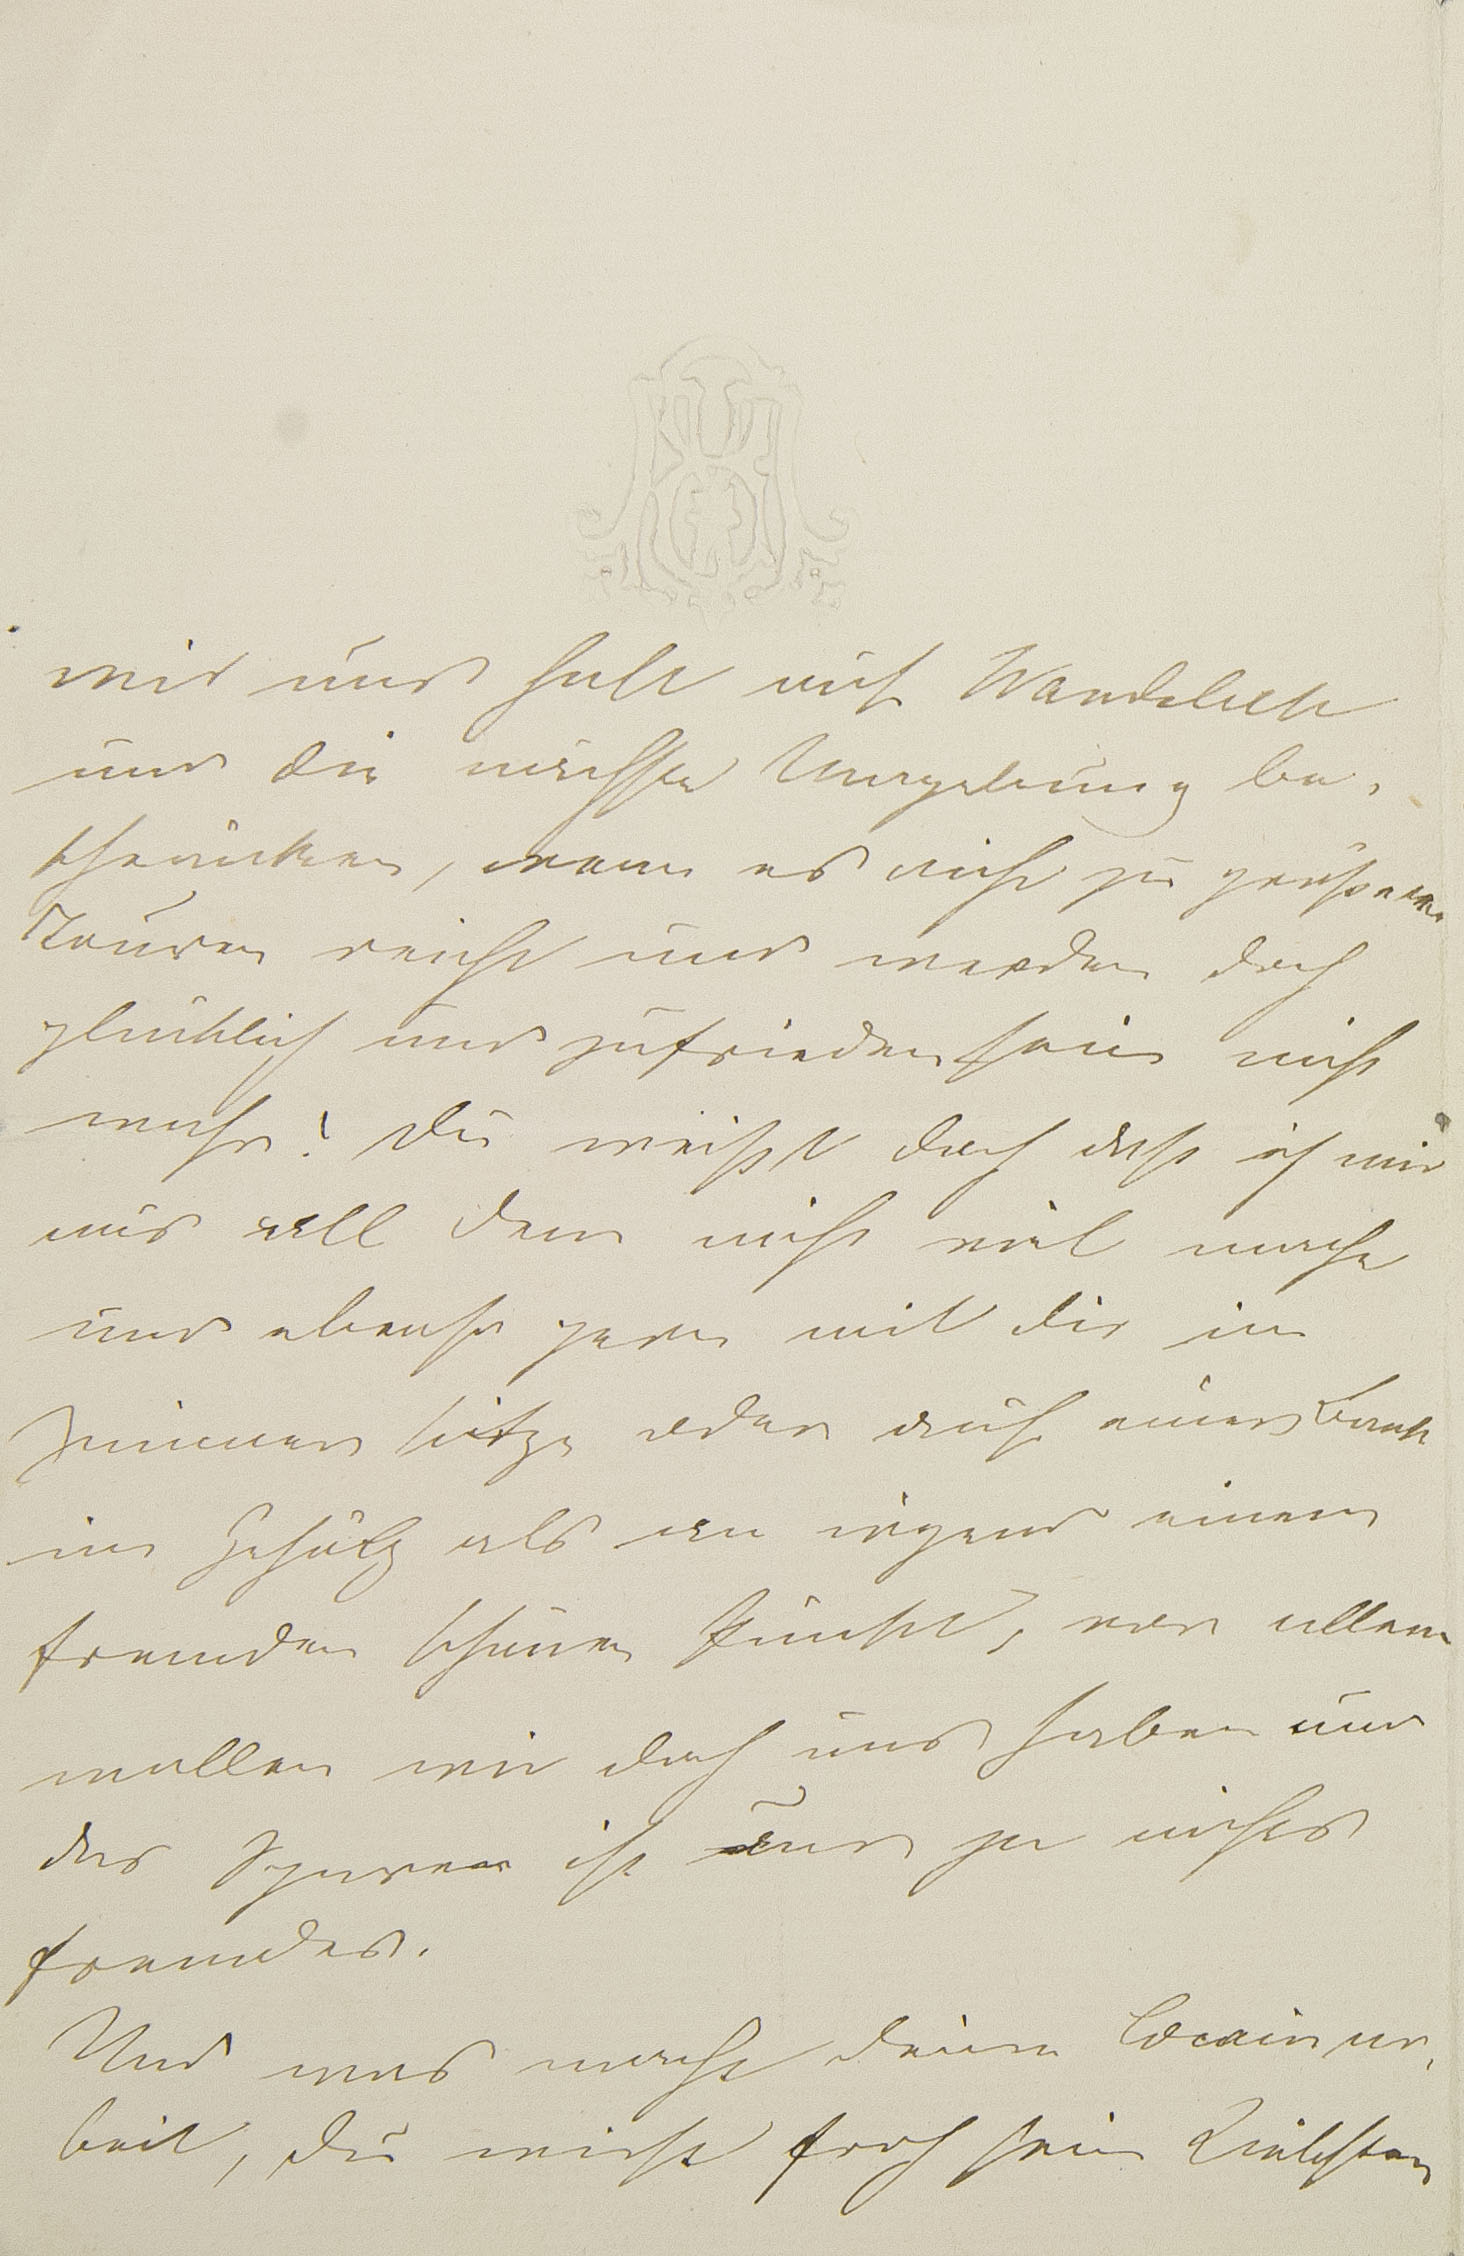 wir uns halt auf Wandsbek
und die nächste Umgebung be-
schränken, wenn es nicht zu größeren
Touren reicht und werden doch
glücklich und zufrieden sein nicht
wahr! Du weißt doch daß ich mir
aus all dem nicht viel mache
und ebenso gern mit dir im
Zimmer sitze oder auf einer Bank
im Gehölz als an irgend einem
fremden schönen Punkt, vor allem
wollen wir doch uns haben und
das Sparen ist uns ja nichts
fremdes.
Und was macht deine Cocainar-
beit, du wirst froh sein Liebster